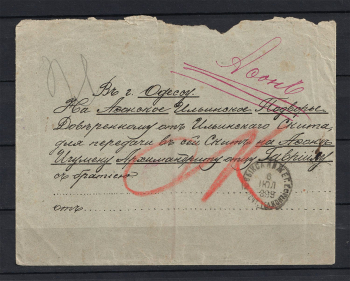 Аѳонъ
Въ г. Одессу
На Аѳонское Ильинское Подворье
Довѣренному отъ Ильинскаго Скита,
для передачи въ сей Скитъ на Аѳонъ
Игумену Архимандриту отцу Гавріилу
съ братіею
отъ
6
ІЮЛ